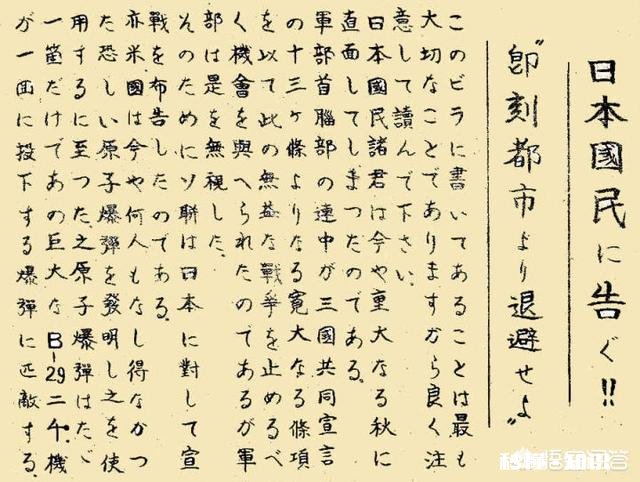 日本國民に告ぐ!!
"即刻都市より退避せよ"
このビラに書いてあることは最も
大切なことでありますから良く注
意して讀んで下さい。
日本國民諸君は今や重大なる秋に
直面してしまつたのである。
軍部首腦部の連中が三國共同宣言
の十三ヶ條よりなる寛大なる條項
を以て此の無益な戰爭を止めるべ
く機會を與へられたのであるが軍
部は是を無視した。
そのためにソ聯は日本に對して宣
戰を布告したのである。
亦米國は今や何人もなし得なかつ
た恐しい原子爆彈を發明し之を使
用するに至つた。之原子爆彈はたゞ
一箇だけであの巨大なB-29二千機
が一面に投下する爆彈に匹敵する。